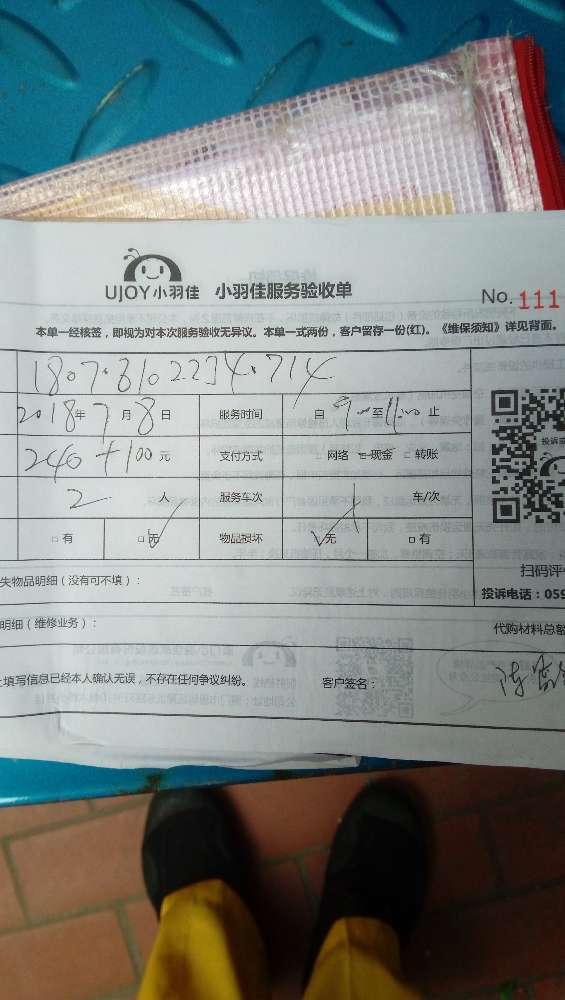 UJOY小羽佳 小羽佳服务验收单
No. 111
本单一经核签，即视为对本次服务验收无异议。本单一式两份，客户留存一份(红)。《维保须知》详见背面。
1807.8102234.714
2018年7月8日 服务时间 自9 至11:00止
240+100元 支付方式 □网络 □现金 □转账
2人 服务车次 1 车/次
□有 □无 物品损坏 □无 □有
失物品明细（没有可不填）：
扫码评
投诉电话：059
明细（维修业务）： 代购材料总额
填写信息已经本人确认无误，不存在任何争议纠纷。 客户签名： 陈